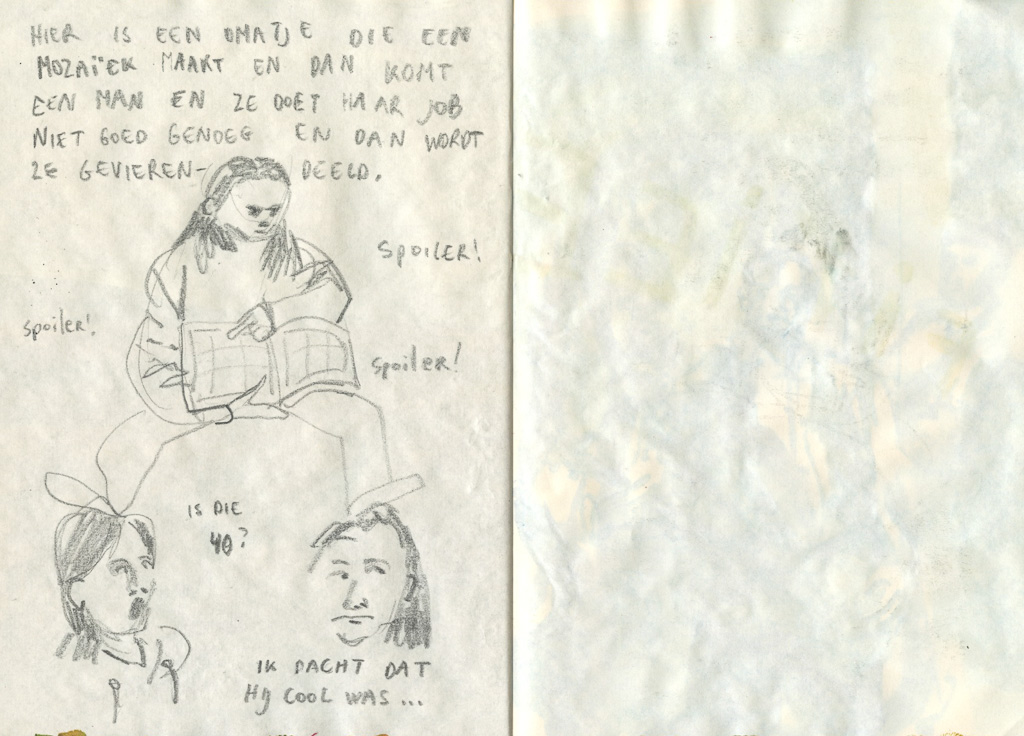 HIER IS EEN OMATJE DIE EEN
MOZAÏEK MAAKT EN DAN KOMT
EEN MAN EN ZE DOET HAAR JOB
NIET GOED GENOEG EN DAN WORDT
ZE GEVIEREN- DEELD.
SPOILER!
spoiler!
spoiler!
IS DIE
40?
IK DACHT DAT
HIJ COOL WAS ...